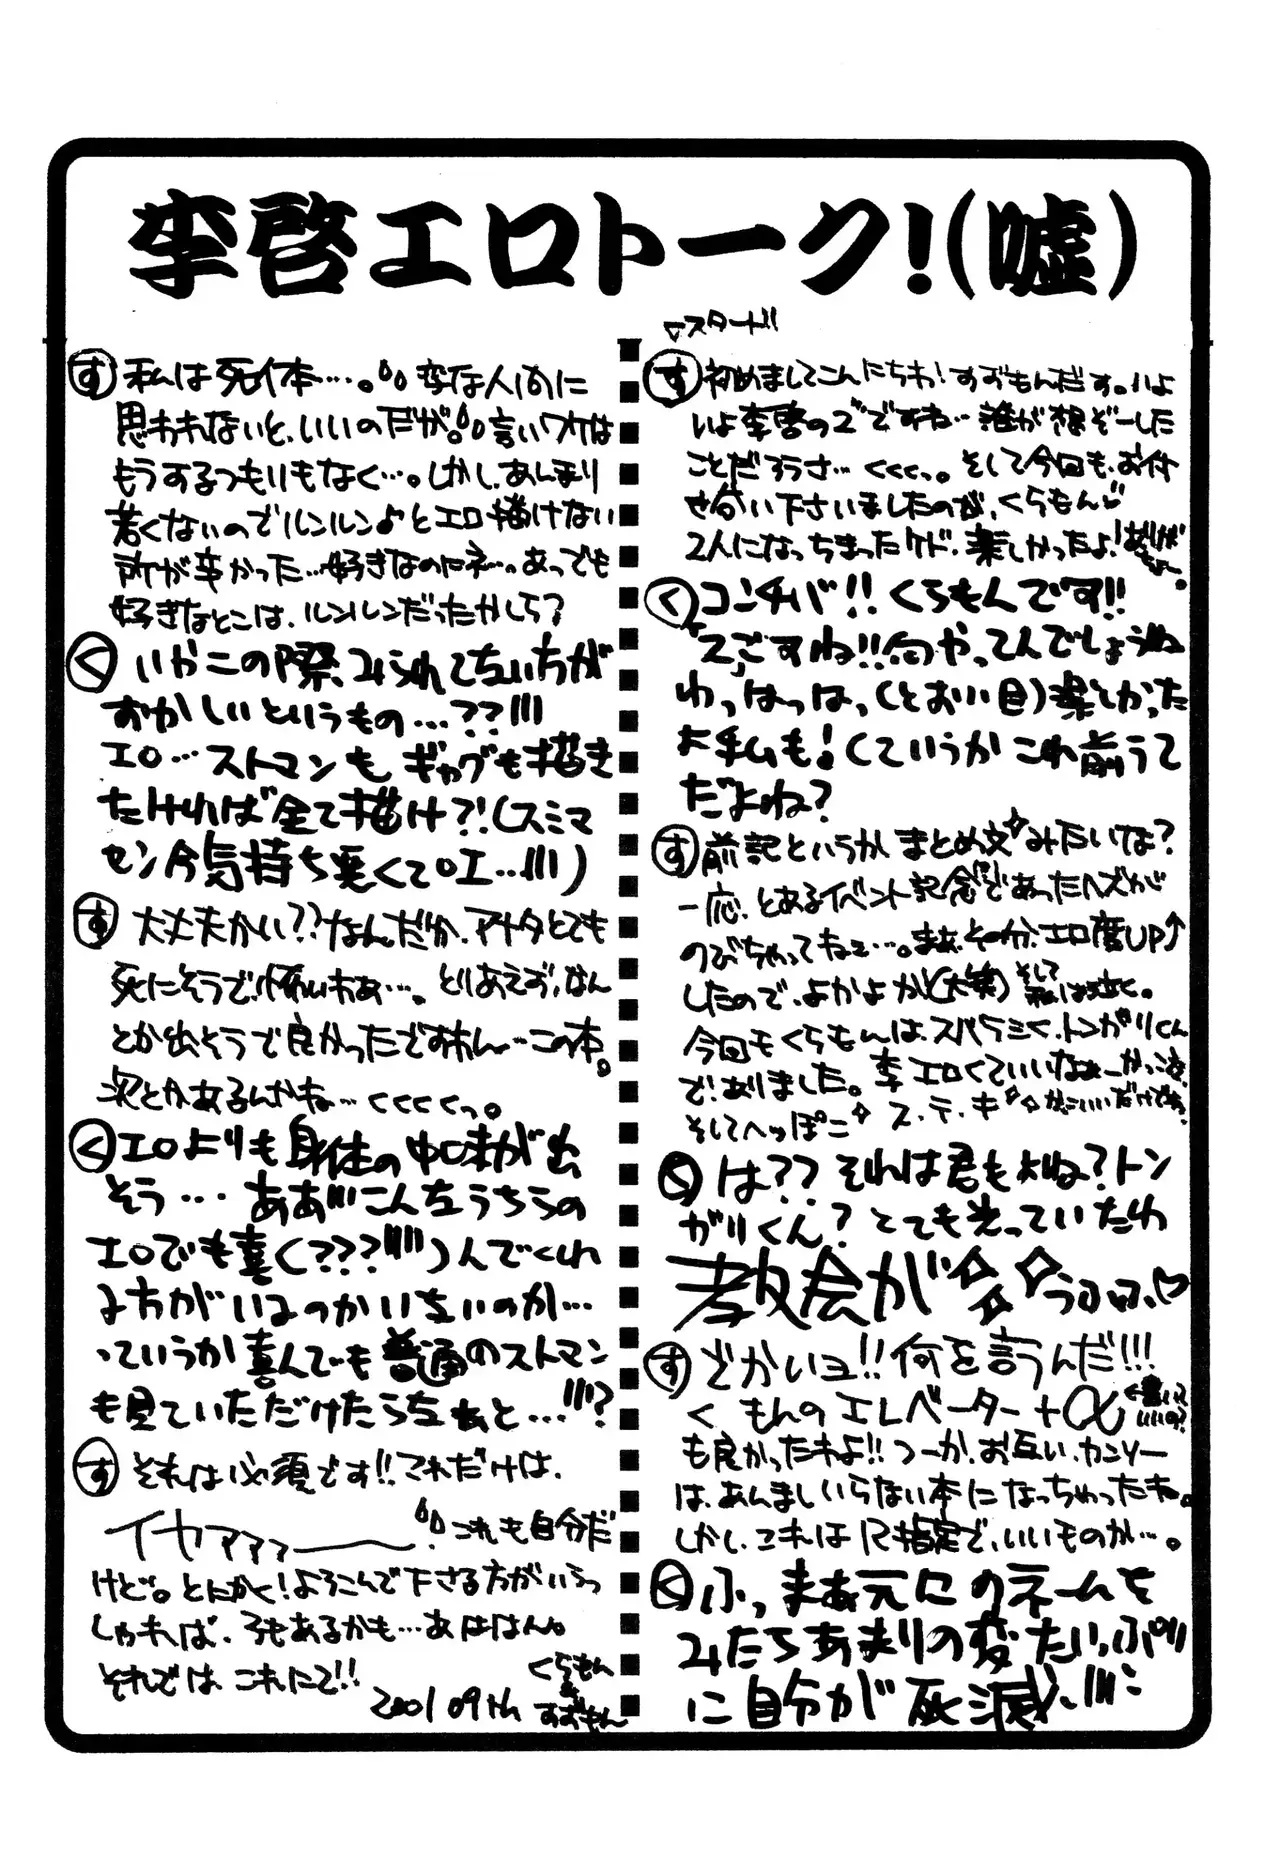 李啓エロトーク!(嘘)
▽スタート!!
す 初めましてこんにちわ!すおもんだす。いよ
いよ李啓の2ですね…誰が想ぞーした
ことだろうさ…くくくっ。そして今回も、お付
き合い下さいましたのが、くらもん♡
2人になっちまったケド、楽しかったよ!ありがとー。
く コンチバ!!くらもんです!!
「2」ごすね!!何やってんでしょうね
わっはっはっ(とおい目)楽しかった
よ私も!(ていうかこれ前うて
だよね?
す 前記というかまとめ文みたいな?
一応、とあるイベント記念であったハズが
のびちゃってねェ…。まあ、その分、エロ度UP↑
したので、よかよか(大笑)そして私は泣く。
今回もくらもんは、スバラミく、トンがりくん
で、ありました。李エロくていいなぁーかっこ良
そしてヘッぽこ ス・テ・キ かっこいいだけで
く は??それは君もよね?トン
がりくん?とても光っていたわ
教会が うふ
す でかいヨ!!何を言うんだ!!!
く もんのエレベーター+α←書いていいの?
も良かったわよ!!つーか、お互い、カンソー
は、あんましいらない本になっちゃったね。
しかし、これはR指定で、いいものか…。
く ふっまあ元にのネームを
みたらあまりの変たいっぷり
に自分が死滅!!!
す 私は死体…。変な人間に
思われないと、いいのだが。言いワケは
もうするつもりもなく…。しかし、あんまり
若くないのでルンルン♪とエロ描けない
所が辛かった…好きなのにネ…あっでも
好きなとこは、ルンルンだったかしら?
く いやこの際、みられて左いちが
おかしいというもの…??!!!
エロ…ストマンも、ギャグも描き
たければ全て描け?!(スミマ
セン今気持ち悪くてロエ…!!!)
す 大丈夫かい??なんだか、アナタとても
死にそうで、怖いわあ…。とりあえず、なん
とか出そうで良かったですわん…この本。
次とかあるんかね…くくくくっ。
く エロよりも身体の中味が出
そう…ああ!!!こんなうちらの
エロでも喜(???!!!!)んでくれ
る方がいるのかいないのか…
っていうか喜んでも普通のストマン
も見ていただけたらなぁと…!!!?
す それは必須です!!これだけは、
イヤァァァ~~。これも自分だ
けど。とにかく!よろこんで下さる方がいらっ
しゃれば、3もあるかも…あははん。
それでは、これにて!!
2001 09th
くらもん
&
すおもん